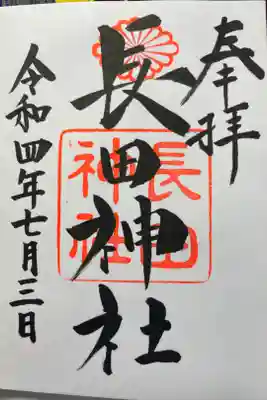 奉拝
長田神社
長田
神社
令和四年七月三日